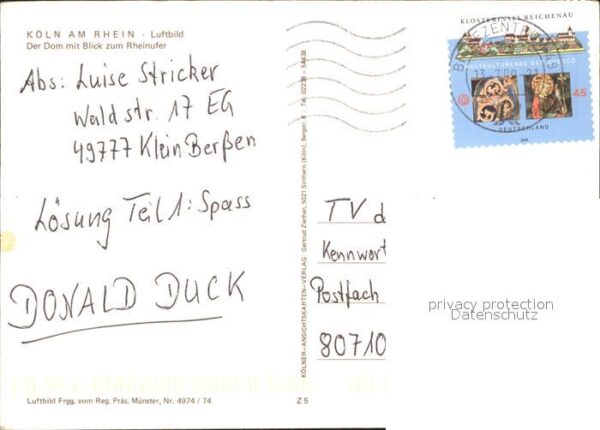 KÖLN AM RHEIN - Luftbild
Der Dom mit Blick zum Rheinufer
Abs: Luise Stricker
Waldstr. 17 EG
49777 Klein Berßen
Lösung Teil 1: Spass
DONALD DUCK
Luftbild Frgg. vom Reg. Präs. Münster, Nr. 4974 / 74
Z 5
KÖLNER-ANSICHTSKARTEN-VERLAG Gertrud Zerthen, 5021 Sinthern (Köln), Bergstr. 8 Tel. 02238 - 54438
KLOSTERINSEL REICHENAU
WELTKULTURERBE DER UNESCO
45
DEUTSCHLAND
BRIEFZENTRUM
TV d
Kennwort
Postfach
80710
privacy protection
Datenschutz